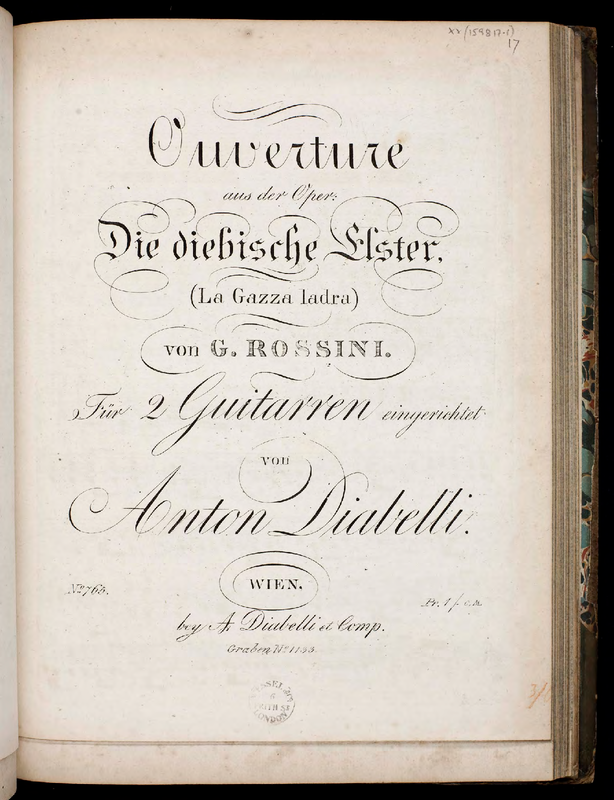 XX(159817.1)
17
Ouverture
aus der Oper:
Die diebische Elster.
(La Gazza ladra)
von G. ROSSINI.
Für 2 Guitarren eingerichtet
von
Anton Diabelli.
WIEN,
Nº 763.
Pr. 1 f. C.M.
bey A. Diabelli et Comp.
Graben Nº 1133.
LONDON
3/